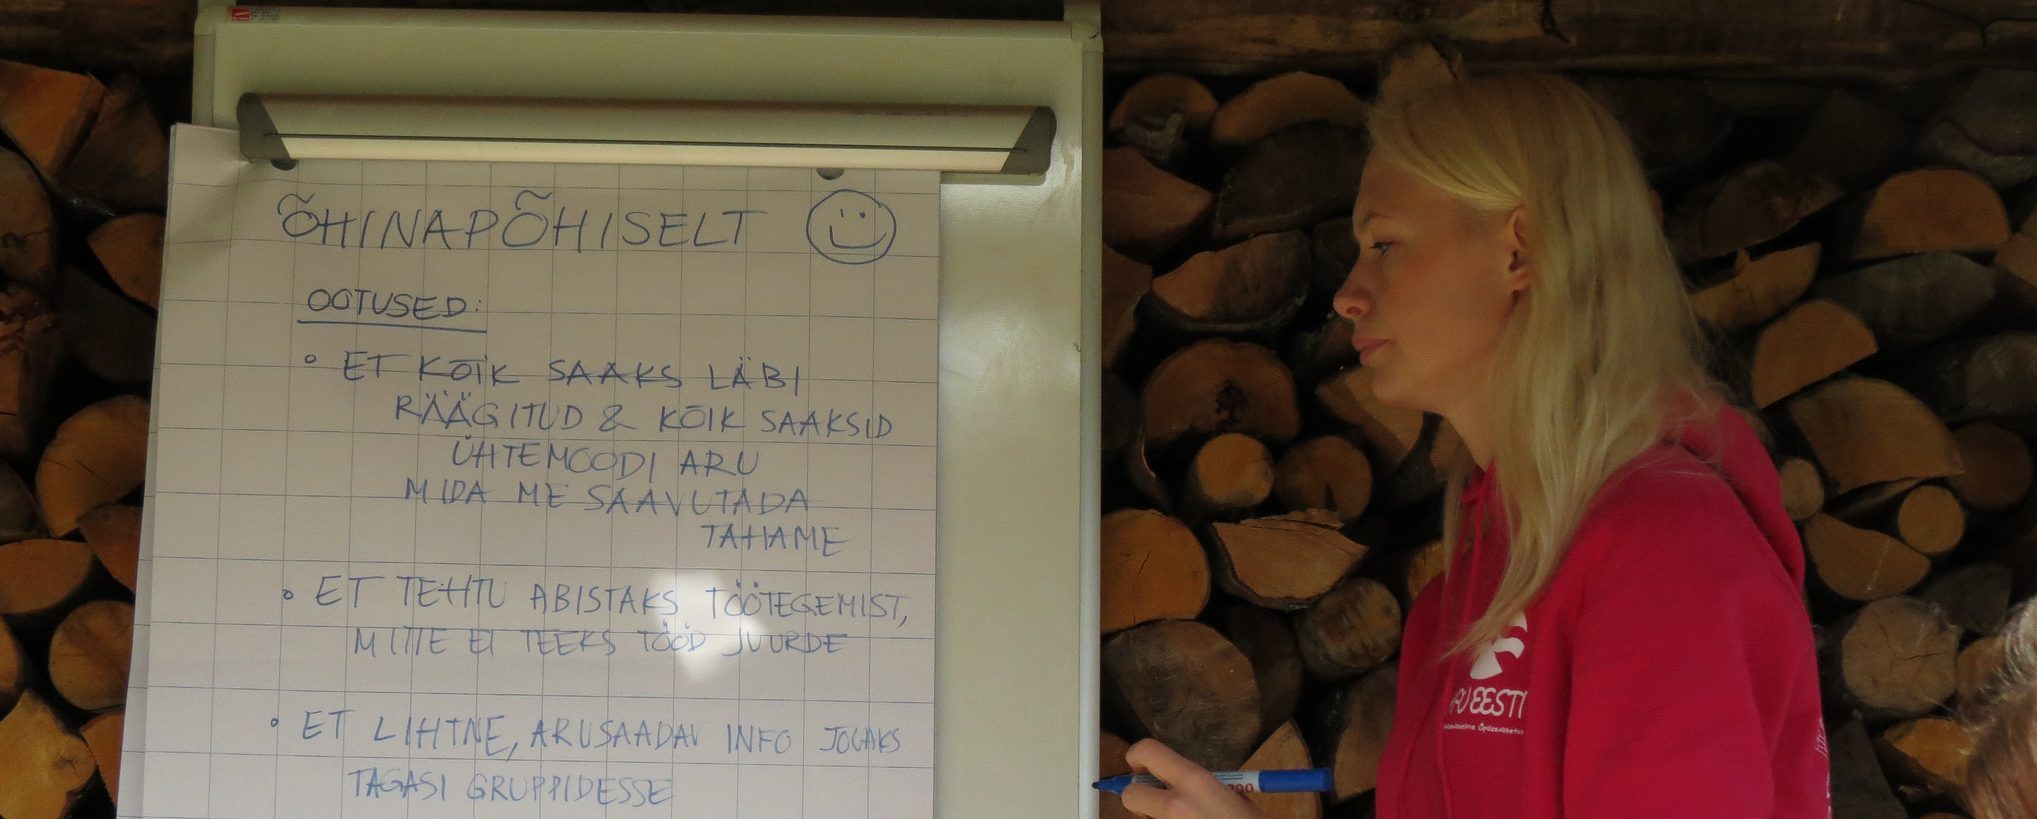 ÕHINAPÕHISELT
OOTUSED:
ET KÕIK SAAKS LÄBI
RÄÄGITUD & KÕIK SAAKSID
ÜHTEMOODI ARU
MIDA ME SAAVUTADA
TAHAME
ET TEHTU ABISTAKS TÖÖTEGEMIST,
MITTE EI TEEKS TÖÖD JUURDE
ET LIHTNE, ARUSAADAV INFO JÕUAKS
TAGASI GRUPPIDESSE
EESTI